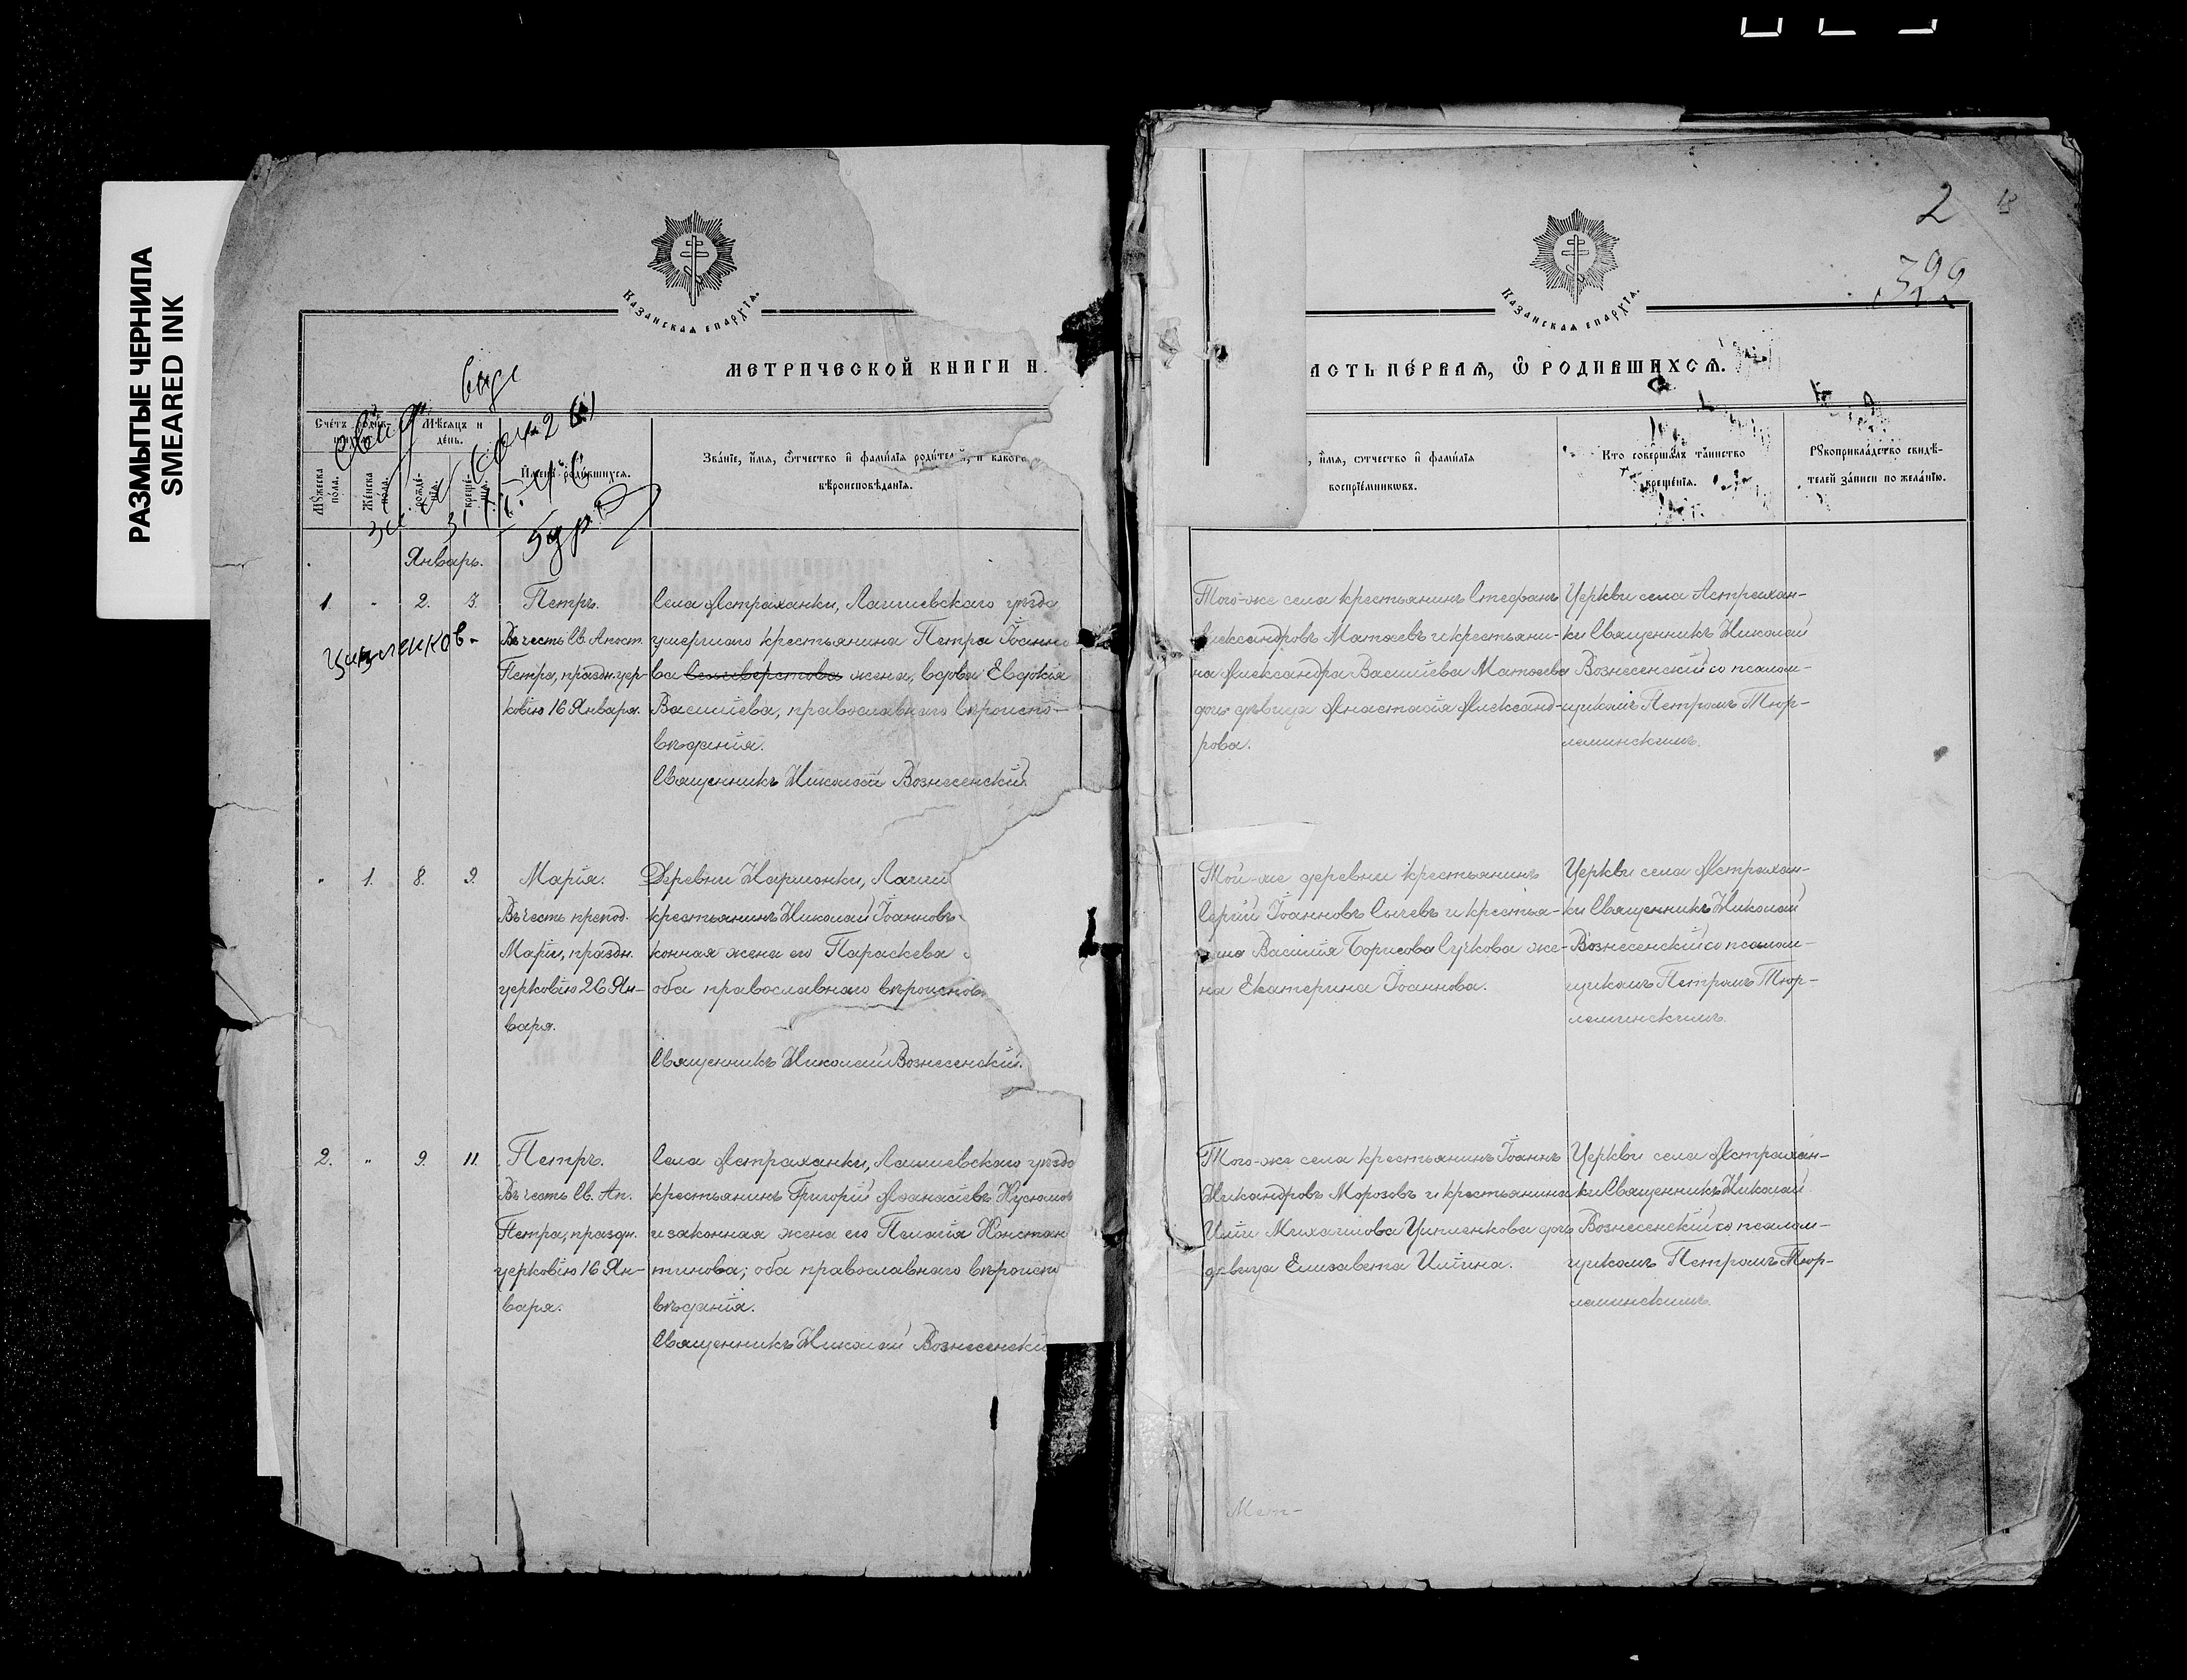 РАЗМЫТЫЕ ЧЕРНИЛА
SMEARED INK
Казанская епархїя.
МЕТРИЧЕСКОЙ КНИГИ Н
Мѣсяцъ и
день.
Мꙋжеска
пола.
Женска
пола.
Имена родившихся.
Званїе, имя, ѿчество и фамилїя
вѣроисповѣданїя.
Январь.
1. " 2. 3. Петръ.
Въ честь Св. Апост.
Петра, праздн. цер-
ковію 16 Января.
Села Астраханки, Лаишевскаго уѣзда
умершаго крестьянина Петра Іоанно
ва Селиверстова жена, вдова Евдокія
Васильева, православнаго вѣроиспо-
вѣданія.
Священникъ Николай Вознесенскій.
Ципленков-
" 1. 8. 9. Марія.
Въ честь препод.
Маріи, праздн.
церковію 26 Ян-
варя.
Деревни Нармонки, Лаиш
крестьянинъ Николай Іоанновъ
конная жена его Параскева
оба православнаго вѣроиспов
Священникъ Николай Вознесенскій.
2. " 9. 11. Петръ.
Въ честь Св. Ап.
Петра, праздн.
церковію 16 Ян-
варя.
Села Астраханки, Лаишевскаго уѣзда
крестьянинъ Григорій Аѳанасіевъ
и законная жена его Пелагія Констан
тинова; оба православнаго вѣроиспо
вѣданія.
Священникъ Николай Вознесенскій
2
Казанская епархїя.
АСТЬ ПЕРВАЯ, Ѡ РОДИВШИХСЯ.
, имя, ѿчество и фамилїя
воспрїемникωвъ.
Кто совершалъ таинство
крещенїя.
Рꙋкоприкладство свидѣ-
телей записи по желанїю.
Того-же села крестьянинъ Стефанъ
Александровъ Матаевъ и крестьяни-
на Александра Васильева Матаева
дочь дѣвица Анастасія Александ-
рова.
Церкви села Астрахан-
ки Священникъ Николай
Вознесенскій со псалом-
щикомъ Петромъ Тюр-
леминскимъ.
Той-же деревни крестьянинъ
Сергій Іоанновъ Сычевъ и крестья-
нина Василія Борисова Сучкова же-
на Екатерина Іоаннова.
Церкви села Астрахан-
ки Священникъ Николай
Вознесенскій со псалом-
щикомъ Петромъ Тюр-
леминскимъ.
Того-же села крестьянинъ Іоаннъ
Никандровъ Морозовъ и крестьянина
Иліи Михайлова Ципленкова дочь
дѣвица Елизавета Иліина.
Церкви села Астрахан-
ки Священникъ Николай
Вознесенскій со псалом-
щикомъ Петромъ Тюр-
леминскимъ.